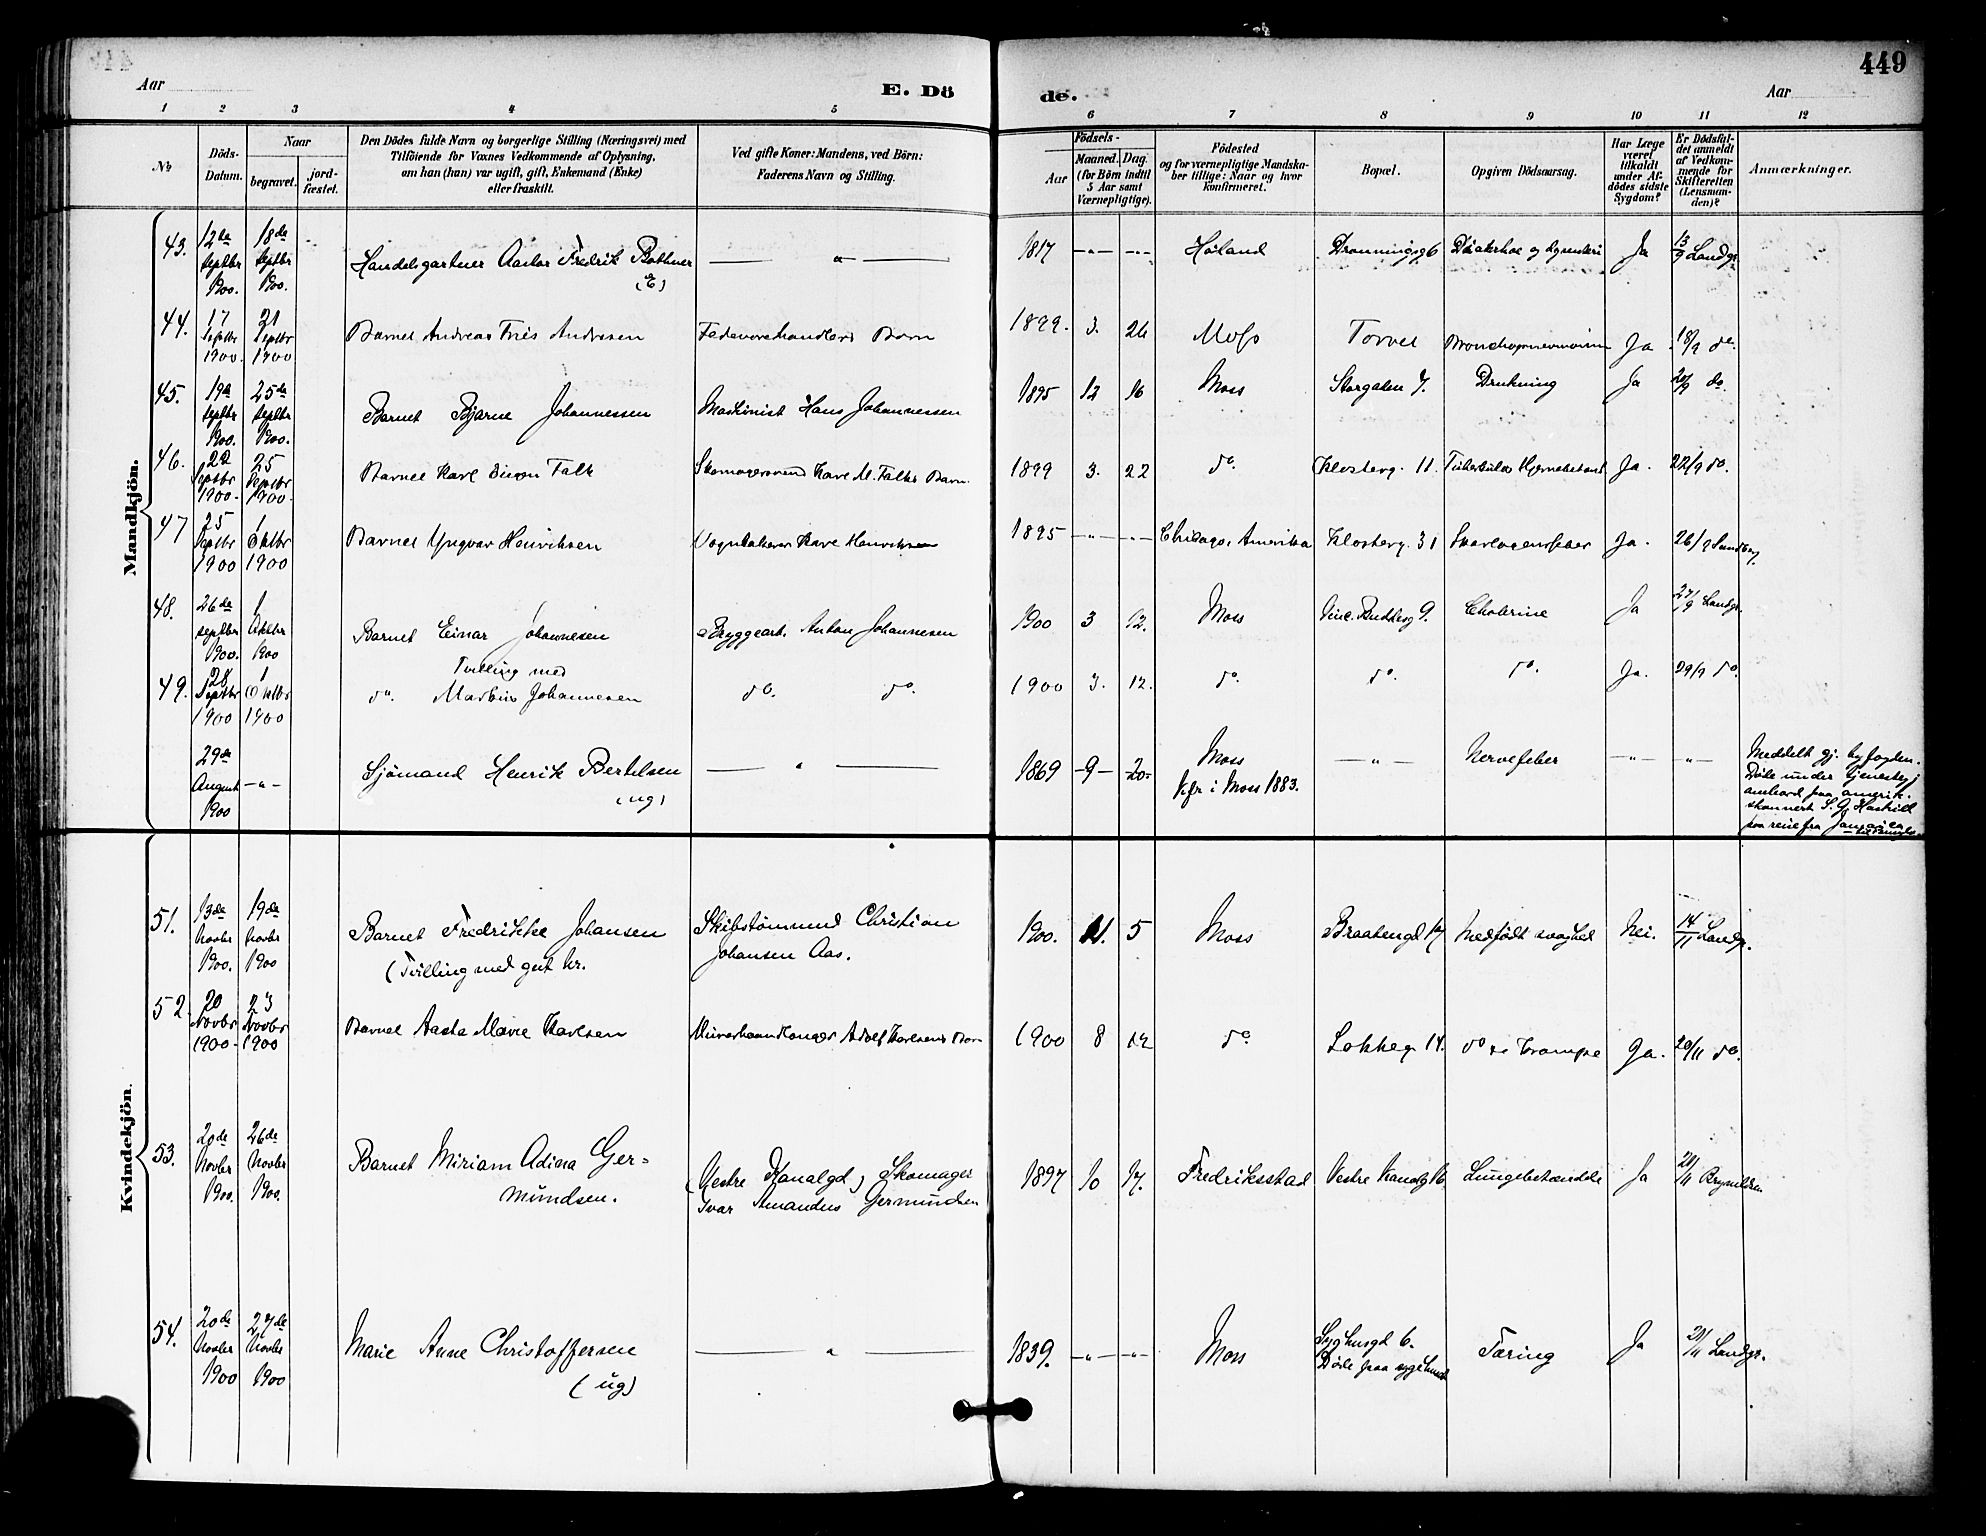 449
Aar
E. Dö
de.
Aar
1 2 3 4 5 6 7 8 9 10 11 12
No
Döds-
Datum.
Naar
begravet.
jord-
fæstet.
Den Dödes fulde Navn og borgerlige Stilling (Næringsvei) med
Tilföiende for Voxnes Vedkommende af Oplysning,
om han (hun) var ugift, gift, Enkemand (Enke)
eller fraskilt.
Ved gifte Koner: Mandens, ved Börn:
Faderens Navn og Stilling.
Födsels-
Aar
Maaned. Dag.
(for Börn indtil
5 Aar samt
Værnepligtige).
Födested
og for værnepligtige Mandska-
ber tillige: Naar og hvor
konfirmeret.
Bopæl.
Opgiven Dödsaarsag.
Har Læge
været
tilkaldt
under Af-
dödes sidste
Sygdom?
Er Dödsfal-
det anmeldt
af Vedkom-
mende for
Skifteretten
(Lensman-
den)?
Anmærkninger.
Mandkjön.
43. 12te Septbr 1900. 18de Septbr 1900. Handelsgartner Fredrik Bothner (E) — " — 1817 — " — Høland Dronningsg 6 og Dysenteri Ja 13/9 Landgr.
44. 17 Septbr 1900. 21 Septbr 1900 Barnet Andreas Friis Andresen Fedevarehandlers Barn 1899. 3. 26 Moss Torvet Bronchopneumonin Ja 18/9 do.
45. 19de Septbr 1900. 25de Septbr 1900. Barnet Bjarne Johannessen Maskinist Hans Johannessen 1895 12 16 Moss Storgaten 7. Drukning Ja 20/9 do.
46. 22 Septbr 1900. 25 Septbr 1900. Barnet Karl Falk Skomagersvend Karl M. Falks Barn. 1899 3. 22 do. Klosterg. 11. Tuberkulos Hjernebetænd Ja. 22/9 do.
47 25 Septbr 1900 1 Oktbr 1900 Barnet Yngvar Henriksen Karl Henriksen 1895 — " — Chicago, Amerika Klosterg. 31 Skarlagensfeber Ja. 26/9
48. 26de Septbr 1900. 1 Oktbr 1900 Barnet Einar Johannesen Bryggearb. Anton Johannesen 1900 3 12. Moss Vinc. Buddesg 9. Cholerine Ja 27/9 Landgr.
Tvilling med
49. 28 Septbr 1900 1 Oktbr 1900 do. Markus Johannesen do. do. 1900 3. 12. do. do. do. Ja. 29/9 do.
29de August 1900 — " — Sjömand Henrik Bertelsen (ug) — " — 1869 — 9 — 20 - Moss
Kfr i Moss 1883. — " — Nervefeber — " — — " —
Meddelt gj. byfogden.
Døde under Tjeneste
ombord paa amerik.
skonnert S. G. Haskell
paa reise fra Jamaica
Kvindekjön.
51. 13de Novbr 1900. 19de Novbr 1900 Barnet Fredrikke Johansen
(Tvilling med gut nr. Skibstømmmd Christian
Johansen Aas. 1900. 11. 5 Moss Braatengd 17 Medfødt svaghed Nei. 14/11 Landgr.
52. 20 Novbr 1900. 23 Novbr 1900 Barnet Aasta Marie Karlsen Murerhaandlanger Adolf Karlsens Barn 1900 8 12 do. Løkkeg 14. do Krampe Ja. 20/11 do.
53. 20de Novbr 1900. 26de Novbr 1900. Barnet Miriam Adina Ger=
mundsen. (Vestre Kanalgd) Skomager
Ivar Amandus Germundsen 1897 10 17. Fredriksstad Vestre Kanalg 16. Lungebetændelse Ja 20/11 Brynildsen
54. 20de Novbr 1900 27de Novbr 1900 Marie Anne Christoffersen
(ug) — " — 1839. — " — Moss Syghusgd 6.
Døde paa sygehuset Tæring Ja 21/11 Landgr.